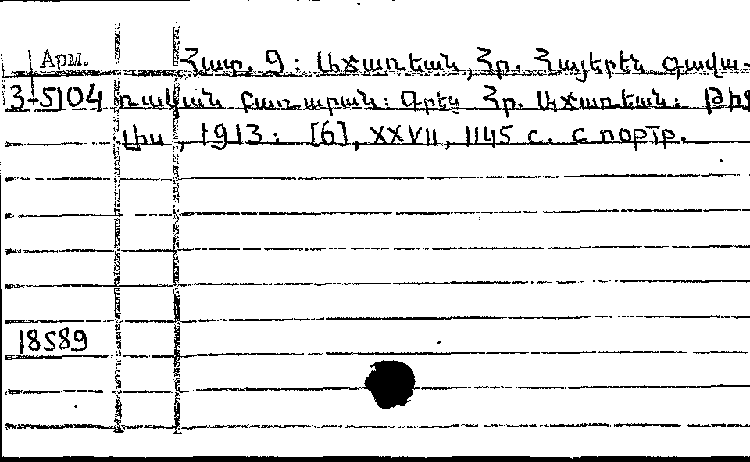 Арм.
Հատ. 9: Աճառեան, Հր. Հայերէն գավա-
3-5104 ռական բառարան: Գրեց Հր. Աճառեան: Թիֆ
լիս, 1913: [6], XXVII, 1145 с. с портр.
18589